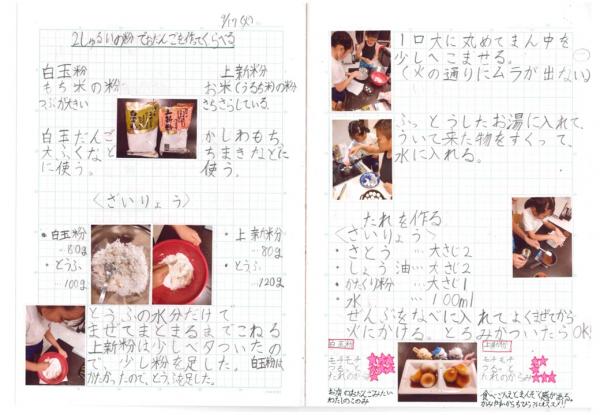 9/17(火)
2しゅるいの粉でおだんごを作ってくらべる
白玉粉
もち米の粉
つぶが大きい
白玉だんご
大ふくなど
に使う。
上新粉
お米(うるち米)の粉
さらさらしている。
かしわもち、
ちまきなどに
使う。
〈ざいりょう〉
・白玉粉
…80g
・とうふ
…100g
・上新粉
…80g
・とうふ
…120g
とうふの水分だけで
まぜてまとまるまでこねる
上新粉は少しベタついたの
で、少し粉を足した。白玉粉は
かたかったので、とうふを足した。
1口大に丸めてまん中を
少しへこませる。
(火の通りにムラが出ない)
ふっとうしたお湯に入れて、
ういて来た物をすくって、
水に入れる。
たれを作る
〈ざいりょう〉
・さとう…大さじ2
・しょう油…大さじ2
・かたくり粉…大さじ1
・水…100ml
ぜんぶをなべに入れてよくまぜてから
火にかける。とろみがついたらOK!
白玉粉
モチモチ
つるっと
たれのからみ
お店のおだんごみたい
わたしのこのみ
上新粉
モチモチ
つるっと
たれのからみ